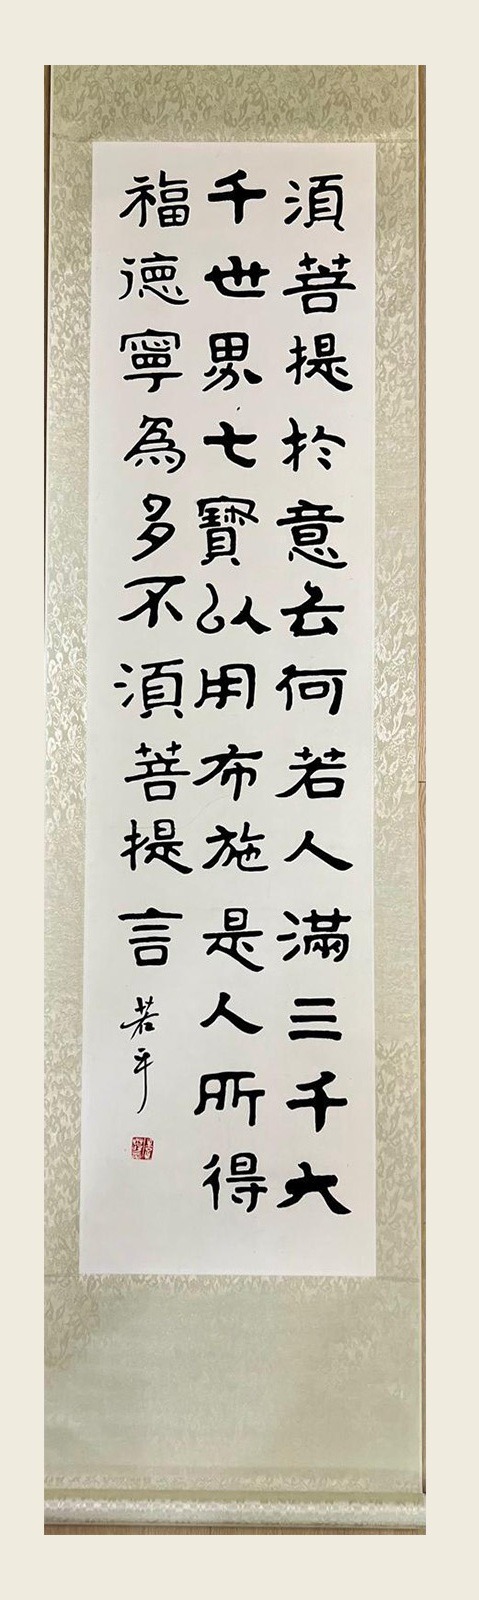 須菩提於意云何若人滿三千大
千世界七寶以用布施是人所得
福德寧為多不須菩提言
若平